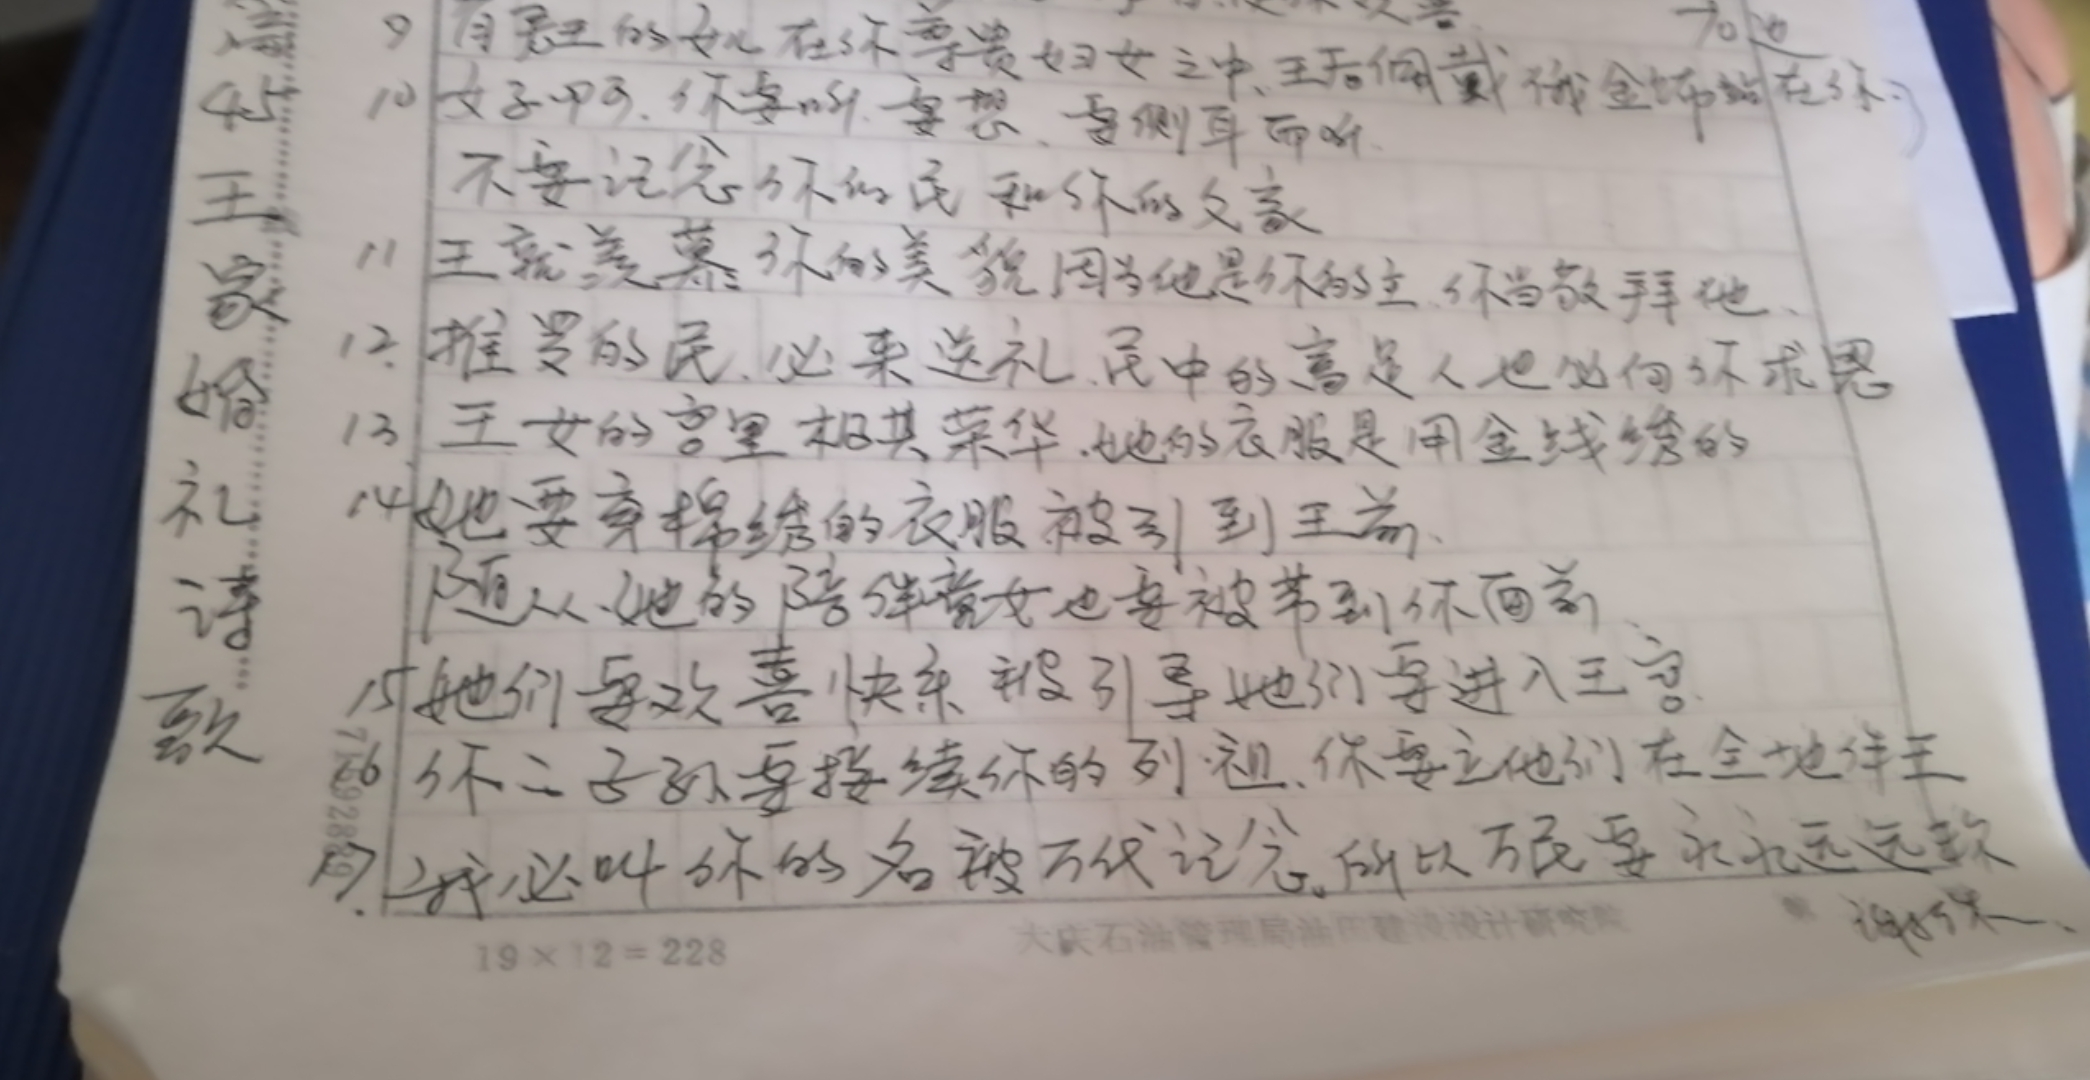 9 有君王的女儿在你尊贵妇女之中、王后佩戴俄金饰站在你右边
10 女子啊、你要听、要想、要侧耳而听.
不要记念你的民和你的父家
11 王就羡慕你的美貌因为他是你的主、你当敬拜他、
12. 推罗的民、必来送礼、民中的富足人也必向你求恩
13 王女的宫里极其荣华、她的衣服是用金线绣的
14 她要穿棉绣的衣服被引到王前、
随从她的陪伴童女也要被带到你面前、
15 她们要欢喜快乐被引导她们要进入王宫.
16 你之子孙要接续你的列祖、你要立他们在全地作王
17. 我必叫你的名被万代记念。所以万民要永永远远称谢你、
45 王家婚礼诗歌
19×12=228
大庆石油管理局油田建设设计研究院